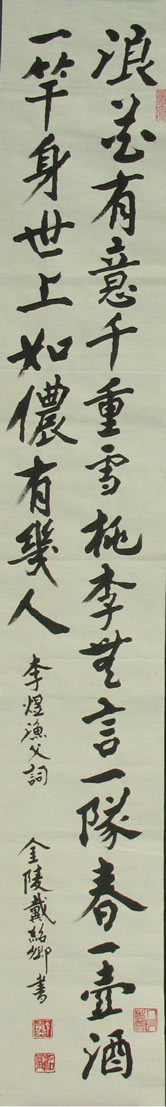 浪花有意千重雪桃李無言一隊春一壺酒
一竿身世上如儂有幾人
李煜漁父詞
金陵戴紹卿書